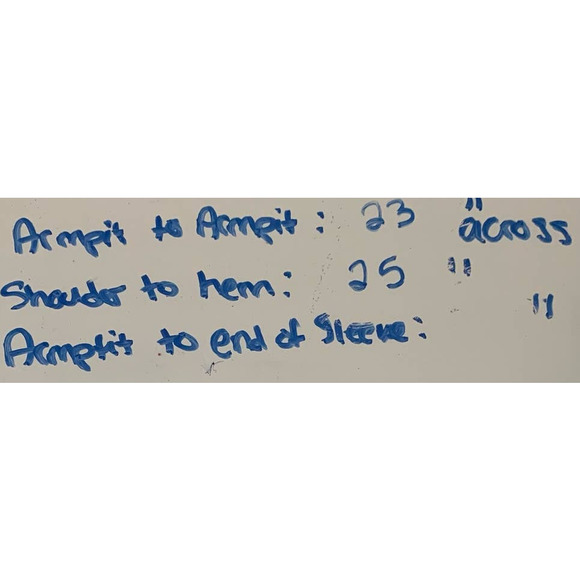 Armpit to Armpit: 23 " across
Shoulder to hem: 25 "
Armpit to end of Sleeve: "